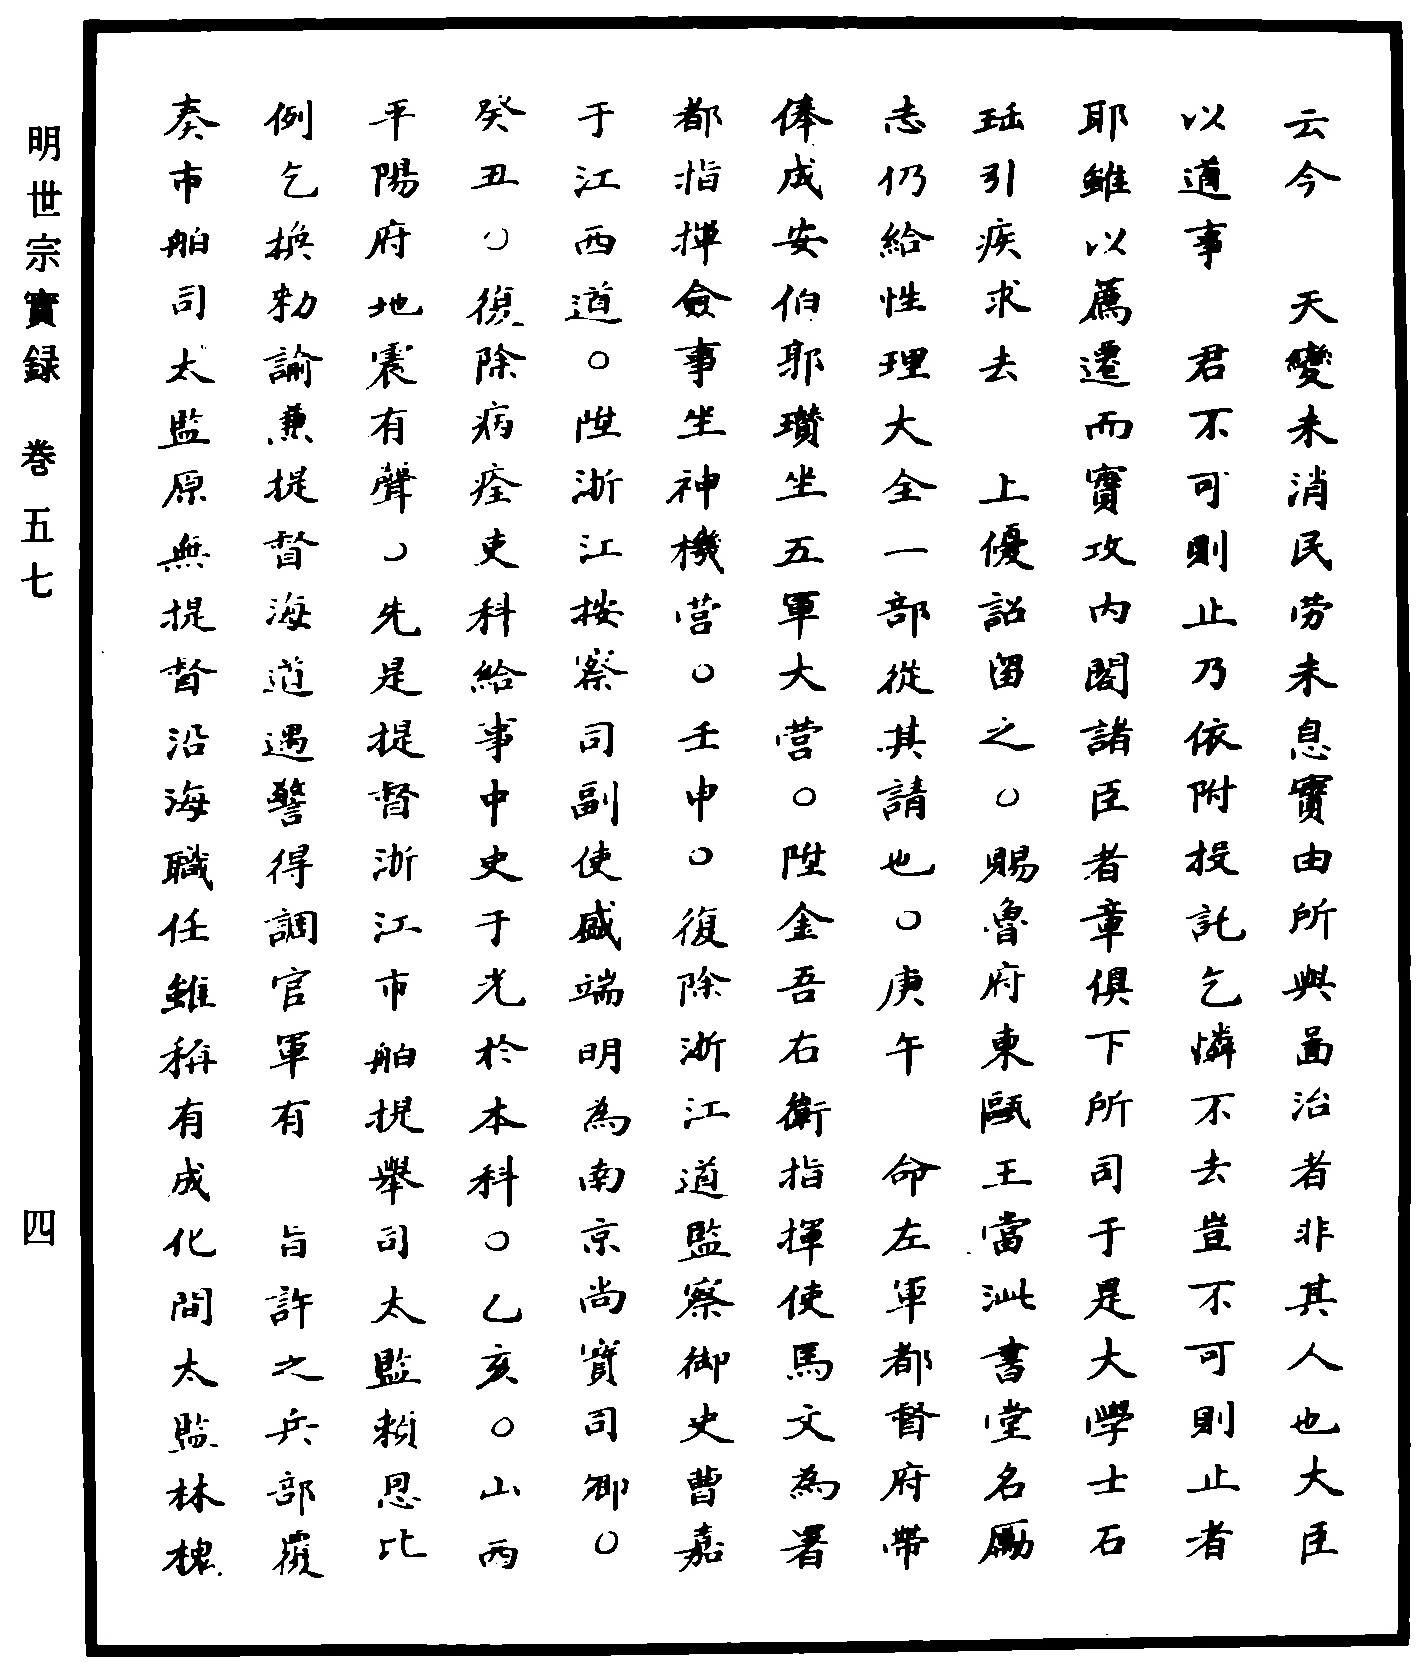 云今　天變未消民劳未息實由所與啚治者非其人也大臣
以道事　君不可則止乃依附投託乞憐不去豈不可則止者
耶雖以薦遷而實攻内閣諸臣者章俱下所司于是大學士石
珤引疾求去　上優詔留之○賜魯府東甌王當泚書堂名勵
志仍給性理大全一部從其請也○庚午　命左軍都督府帶
俸成安伯郭瓚坐五軍大营○陞金吾右衛指揮使馬文為署
都指揮僉事坐神機营○壬申○復除浙江道監察御史曹嘉
于江西道○陞浙江按察司副使盛端明為南京尚寳司卿○
癸丑○復除病痊吏科給事中史于光於本科○乙亥○山西
平陽府地震有聲○先是提督浙江市舶提舉司太監賴恩比
例乞換勑諭兼提督海道遇警得調官軍有　旨許之兵部覆
奏市舶司太監原無提督沿海職任雖稱有成化間太監林槐
明世宗實録　巻五七　四